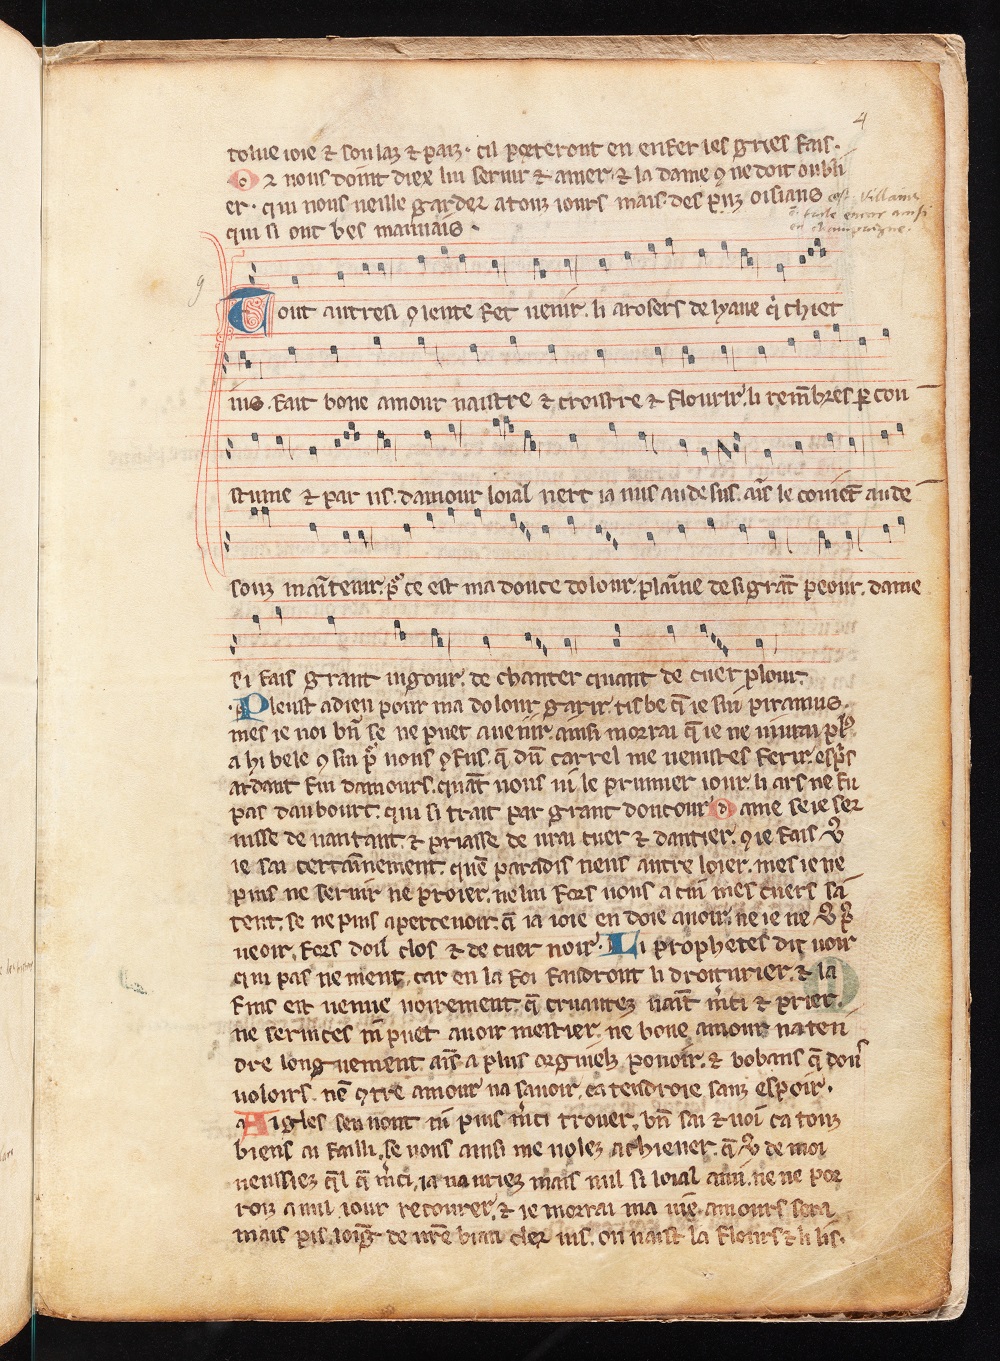 4
tolue ioie & soulaz & paiz. cil porteront en enfer les gries fais.
Or nous doint diex lui seruir & amer. & la dame ꝯ ne doit oubli
er. qui nous ueille garder a touz iours mais. des puz oisiaus
qui si ont bes mauuais.
cest Villaine
en champaigne.
9
Tout autresi ꝯ lente fet uenir. li arosers de lyaue q̇ chiet
ius. fait bone amour naistre & croistre & flourir. li remb̄res p̱ cou
stume & par us. damour loial nert ia nus au desus. ais̄ le couiēt au de
souz maītenir. p̱ ce est ma douce dolour. plaīne de si grāt peour. dame
si fais grant uigour. de chanter quant de cuer plour.
Pleust a dieu pour ma dolour garir. tisbe q̄ ie sui piramus.
mes ie uoi bn̄ se ne puet auenir. ainsi morrai q̄ ie ne uiurai pl⁹
a hi bele ꝯ sui p̱ uous ꝯfus. q̄ dū carrel me uenistes ferir. esp̄s
ardant fiu damours. quāt uous ui le prumier iour. li ars ne fu
pas daubourc. qui si trait par grant doucour. Dame se ie ser
uisse de uantant. & priasse de urai cuer & dantier. ꝯ ie fais uo⁹
ie sai certainnement. quen̄ paradis neus autre loier. mes ie ne
puis ne seruir ne proier. ne lui fors uous a cui mes cuers sa
tent. se ne puis apercevoir. q̄ ia ioie en doie auoir. ne ie ne uo⁹ p̱
ueoir. fors doil clos & de cuer noir. Li prophetes dit uoir
qui pas ne ment. car en la foi faudront li droiturier. & la
fins est uenue uoirement. q̄ cruautez uaīt m̄ci & prier.
ne seruices m̄ puet auoir mestier. ne bone amour naten
dre longuement. ais̄ a plus orguielz pouoir. & bobans q̄ douz
uoloirs. nē ꝯtre amour na sauoir. ca tendroie sanz espoir.
Aigles seu uont m̄ puis m̄ci trouer. bn̄ sai & uoi ca touz
biens ai failli. se uous ainsi me uolez achieuer. q̄ uo⁹ de moi
neussiez q̄l q̄ m̄ci. ia nauriez mais nul si loial ami. ne ne por
roiz a nul iour recourer. & ie morrai ma uie. amours sera
mais pis. loiḡ de ur̄e biau cler uis. ou naist la flours & li lis.